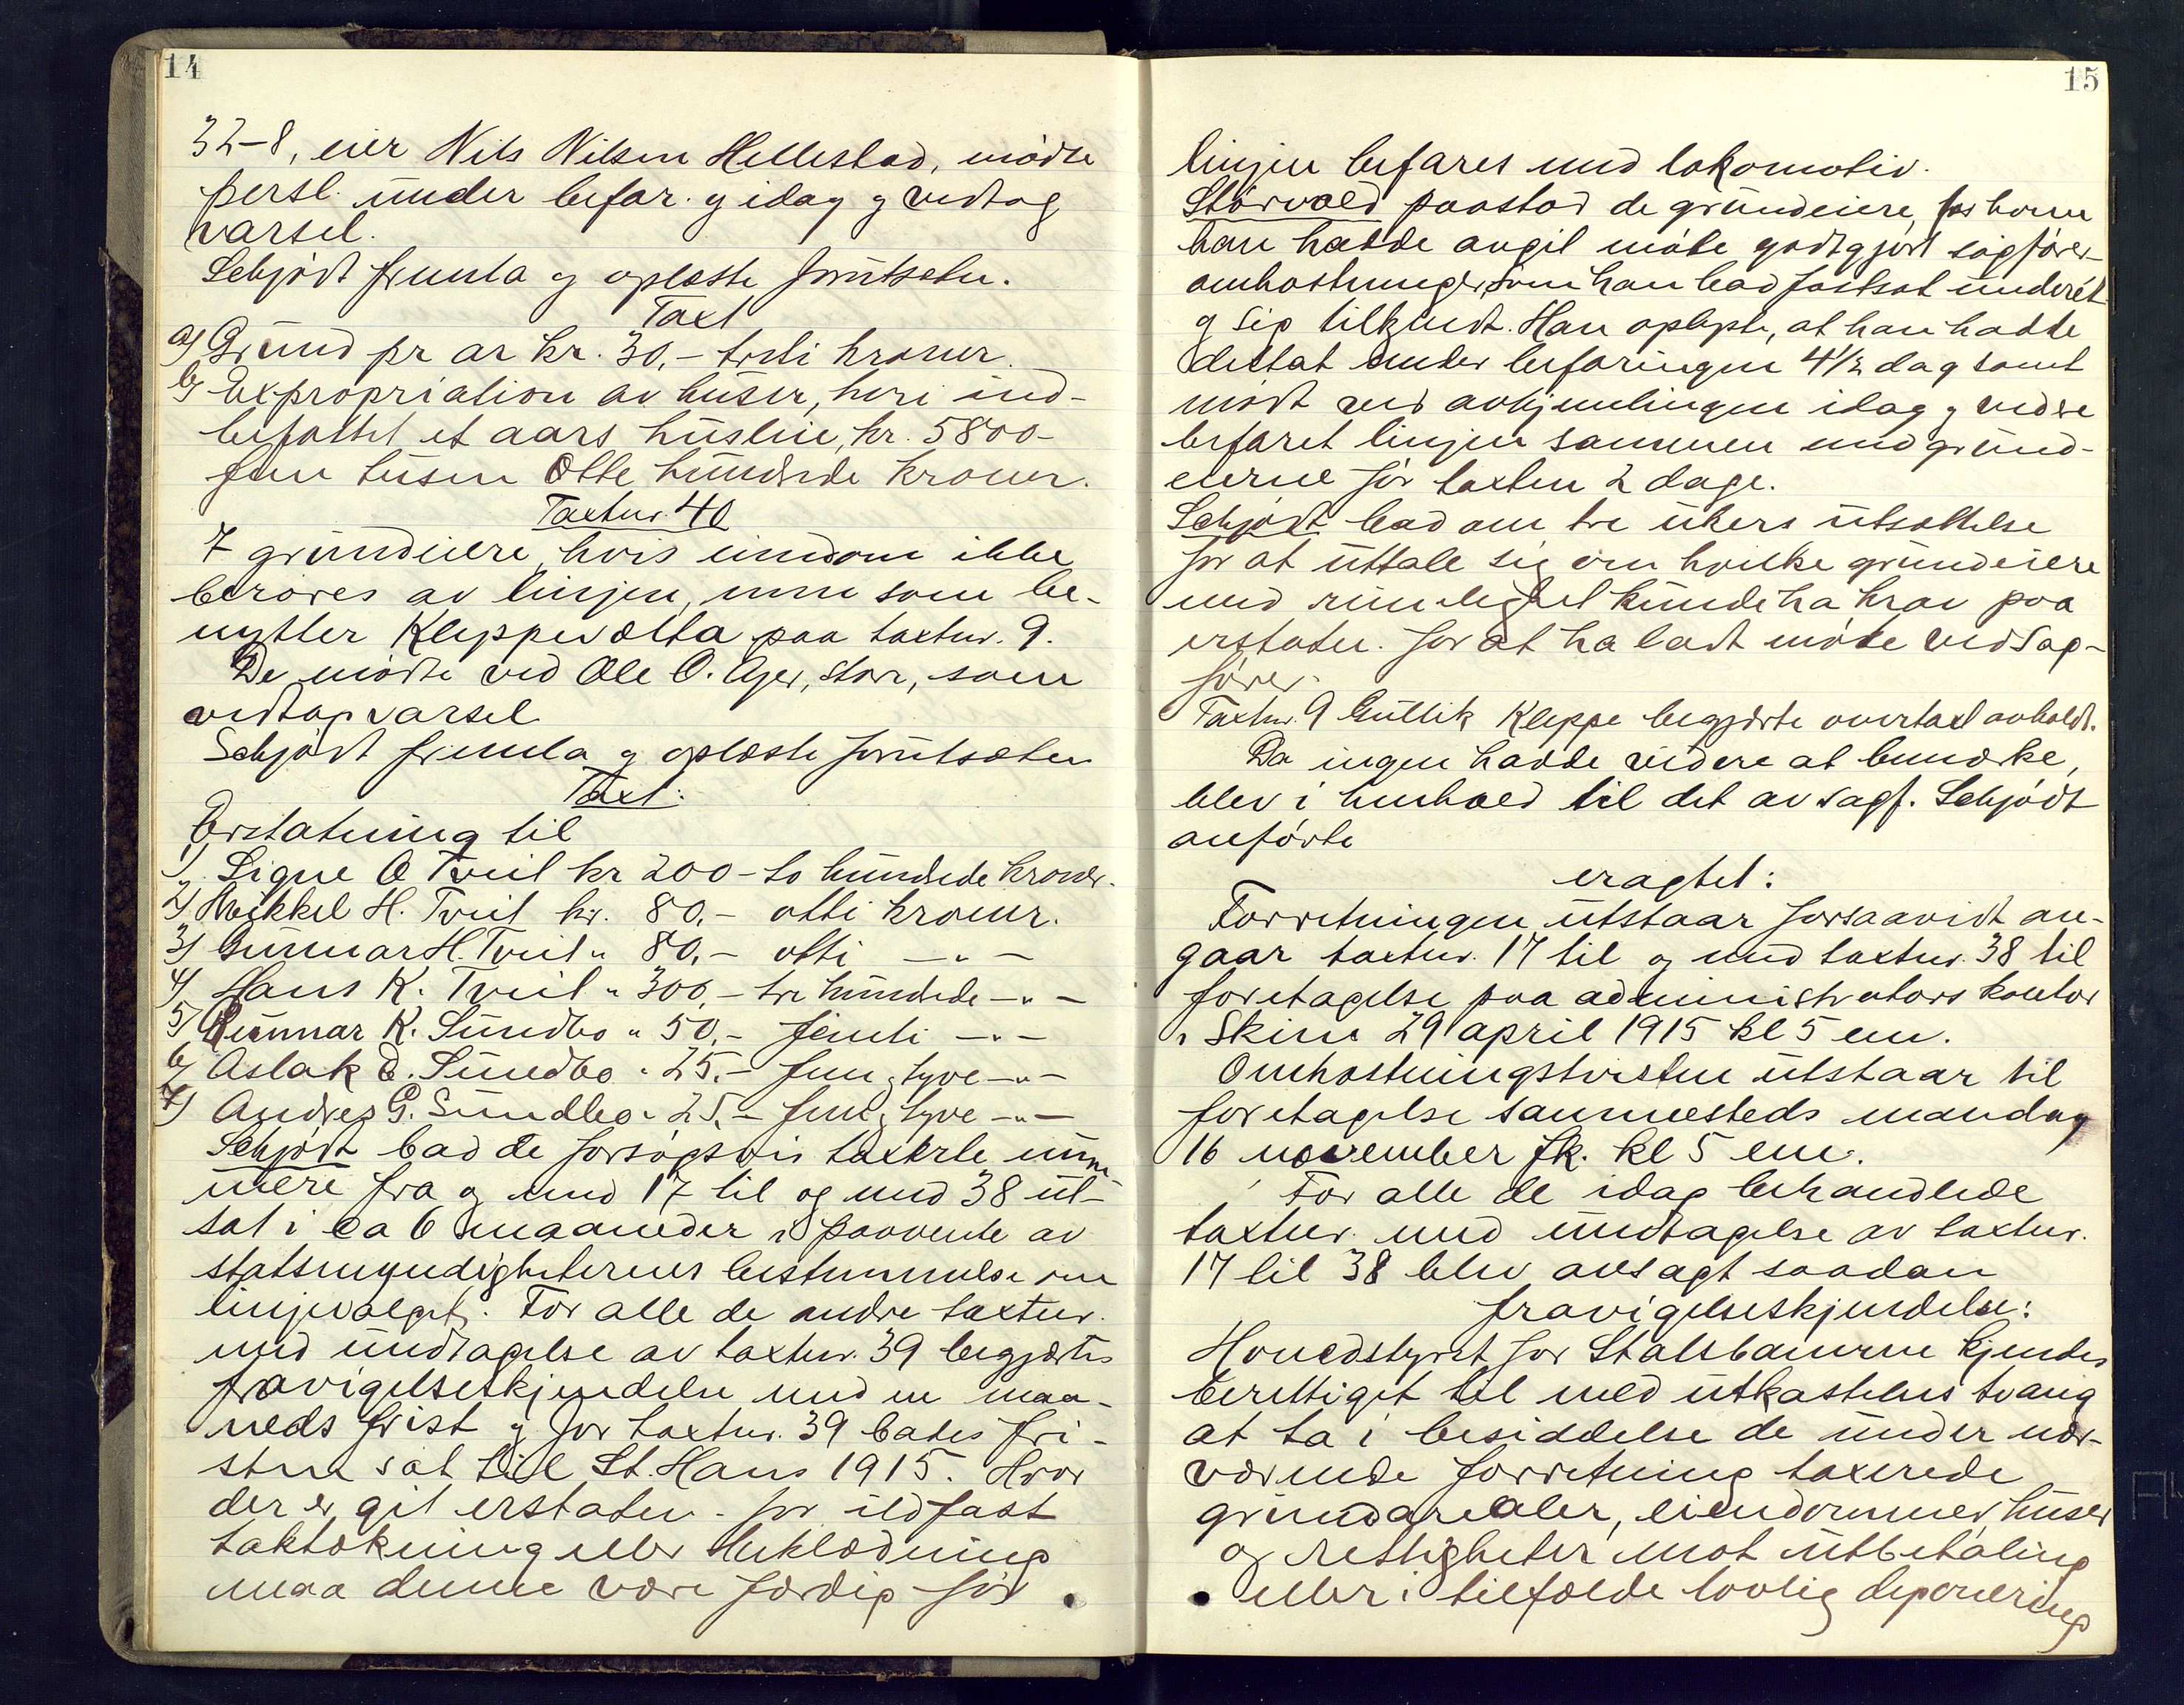 14
32-8, eier Nils Nilsen Hellestad, mødte
persl. under befar. g idag g vedtog
varsel.
Schjødt fremla g oplæste forutsetn.
Taxt
a) Grund pr ar kr. 30,- treti kroner.
b) Expropriation av huser, heri ind-
befattet et aars husleie, kr. 5800-
fem tusen otte hundrede kroner.
Taxtnr. 40
7 grundeiere, hvis eiendom ikke
berøres av linjen, men som be-
nytter Kleppevolta paa taxtnr. 9.
De mødte ved Ole O. Ajer, Storr, som
vedtog varsel
Schjødt fremla g oplæste forutsætn
Taxt:
Erstatning til
1) Signe O Tveit kr 200 - to hundrede kroner.
2) Mikkel H. Tveit kr. 80,- otti kroner.
3) Gunnar H. Tveit " 80,- otti -"-
4) Hans K. Tveit " 300,- tre hundrede -"-
5) Gunnar K. Sundbo " 50,- femti -"-
6) Aslak E. Sundbo " 25,- fem g tyve -"-
7) Andres G. Sundbo " 25,- fem g tyve -"-
Schjødt bad de forsøgsvis takserte num
mere fra og med 17 til og med 38 ut-
sat i ca 6 maaneder i paavente av
statsmyndigheternes bestemmelse om
linjevalget. For alle de andre taxtnr.
med undtagelse av taxtnr. 39 begjærtes
fravigelseskjendelse med en maa-
neds frist g for taxtnr. 39 bades fri-
sten sat til St. Hans 1915. Hvor
der er git erstatn. for ildfast
taktækning eller beklædning
maa denne være færdig før
15
linjen befares med lokomotiv.
Størvold paastod de grundeiere, for hvem
han hadde angit møte godtgjort sagfører-
omkostninger, som han bad fastsat underet
g sig tilkjendt. Han oplyste, at han hadde
deltat under befaringen 4½ dag samt
mødt ved avhjemlingen idag g videre
befaret linjen sammen med grund-
eierne før taxten 2 dage.
Schjødt bad om tre ukers utsættelse
for at uttale sig om hvilke grundeiere
med rimelighet kunde ha krav paa
erstatn. for at ha latt møte ved sag-
fører.
Taxtnr. 9 Gullik Kleppe begjærte overtaxt avholdt.
Da ingen hadde videre at bemærke,
blev i henhold til det av sagf. Schjødt
anførte
eragtet:
Forretningen utstaar forsaavidt an-
gaar taxtnr. 17 til og med taxtnr. 38 til
foretagelse paa administrators kontor
i Skien 29 april 1915 kl 5 em.
Omkostningstvisten utstaar til
foretagelse sammesteds mandag
16 november fk. kl 5 em.
For alle de idag behandlede
taxtnr. med undtagelse av taxtnr.
17 til 38 blev avsagt saadan
fravigelseskjendelse:
Hovedstyret for Statsbanerne kjendes
berettiget til med utkastelses tvang
at ta i besiddelse de under nær-
værende forretning taxerede
grundarealer, eiendommer, huser
og rettigheter mot utbetaling
eller i tilfælde lovlig deponering